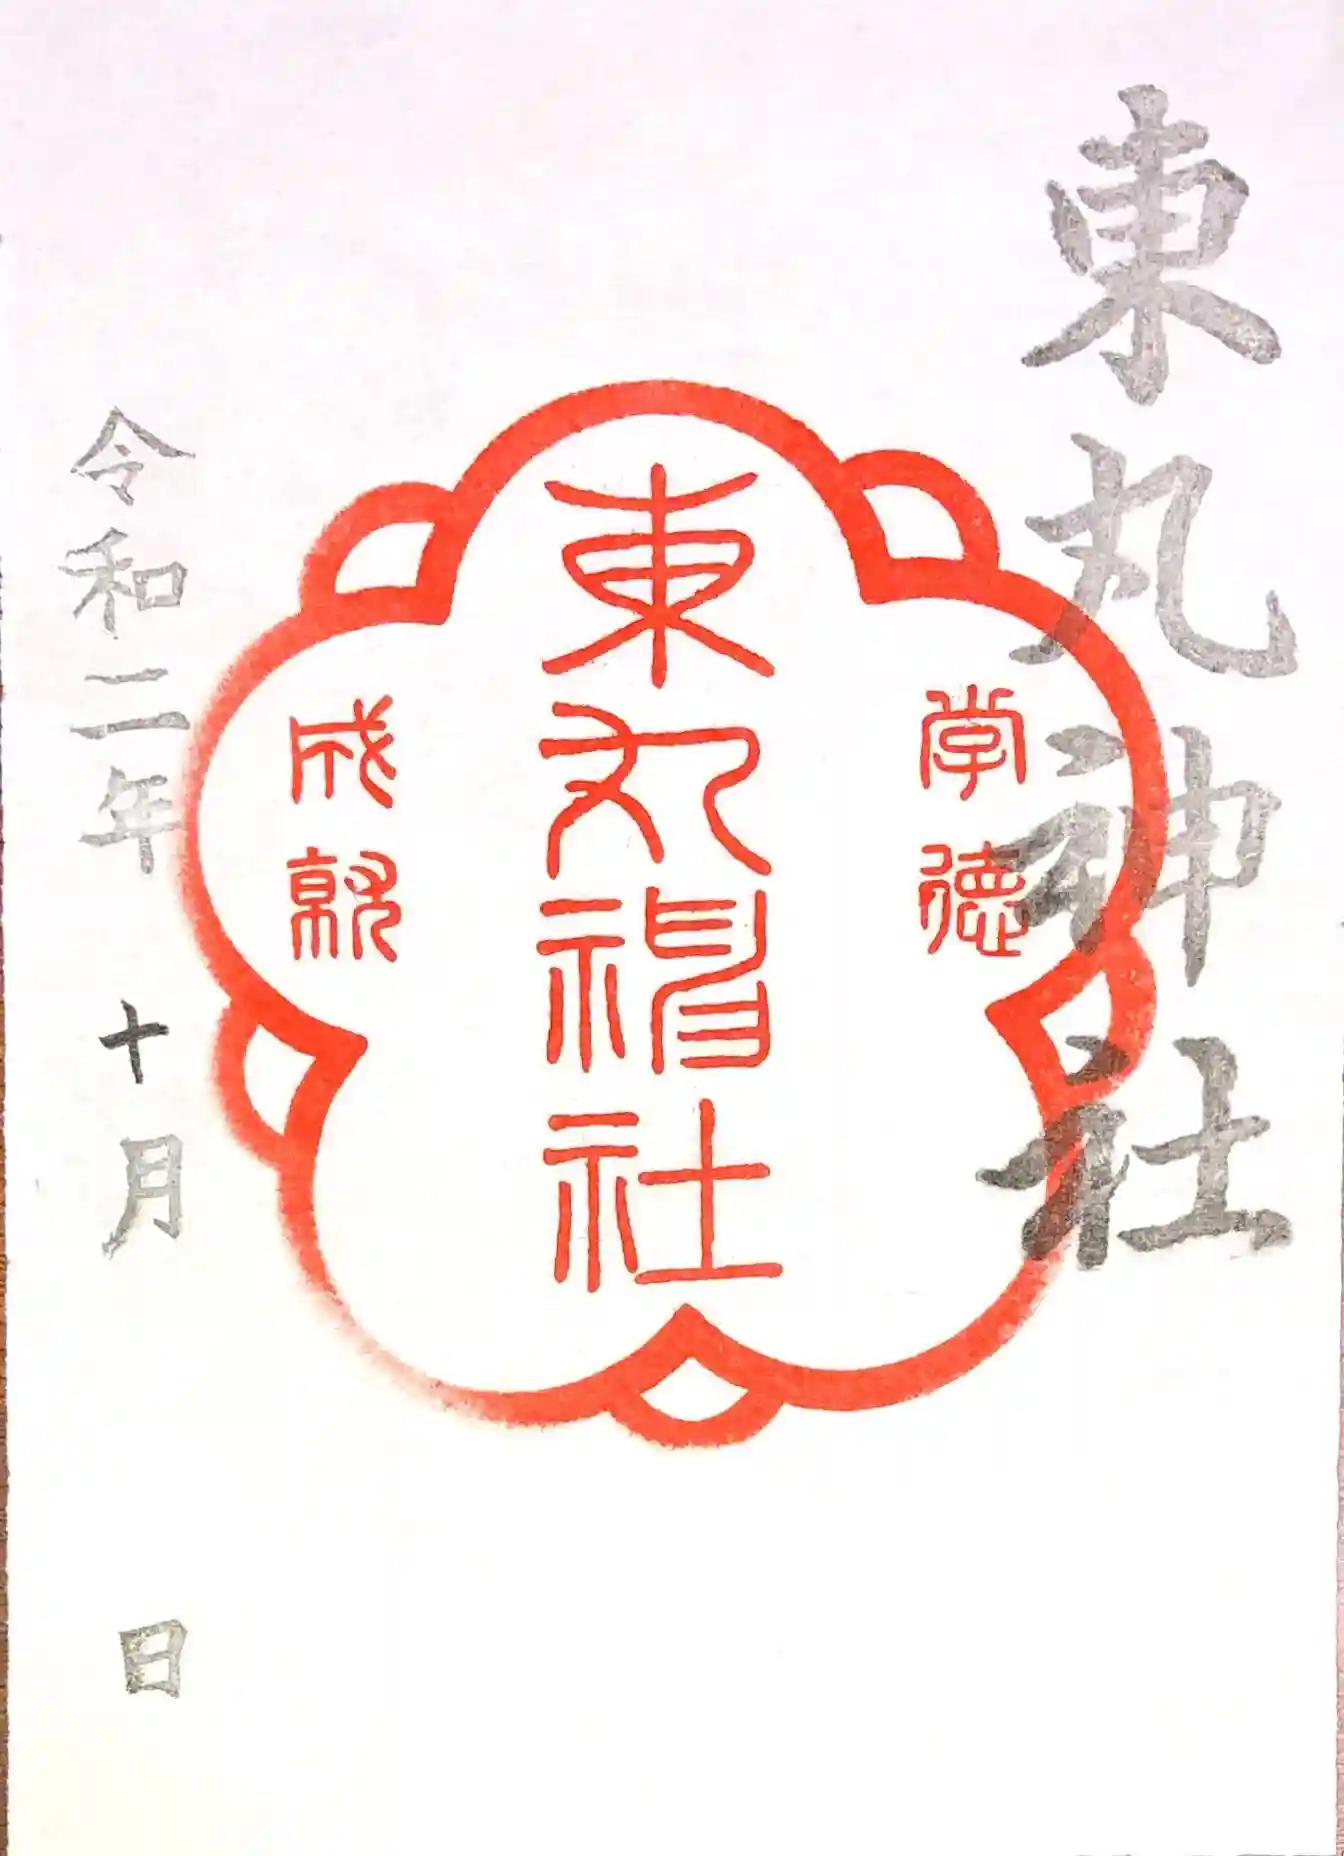 東丸神社
学德
東丸神社
成就
令和二年十月 日